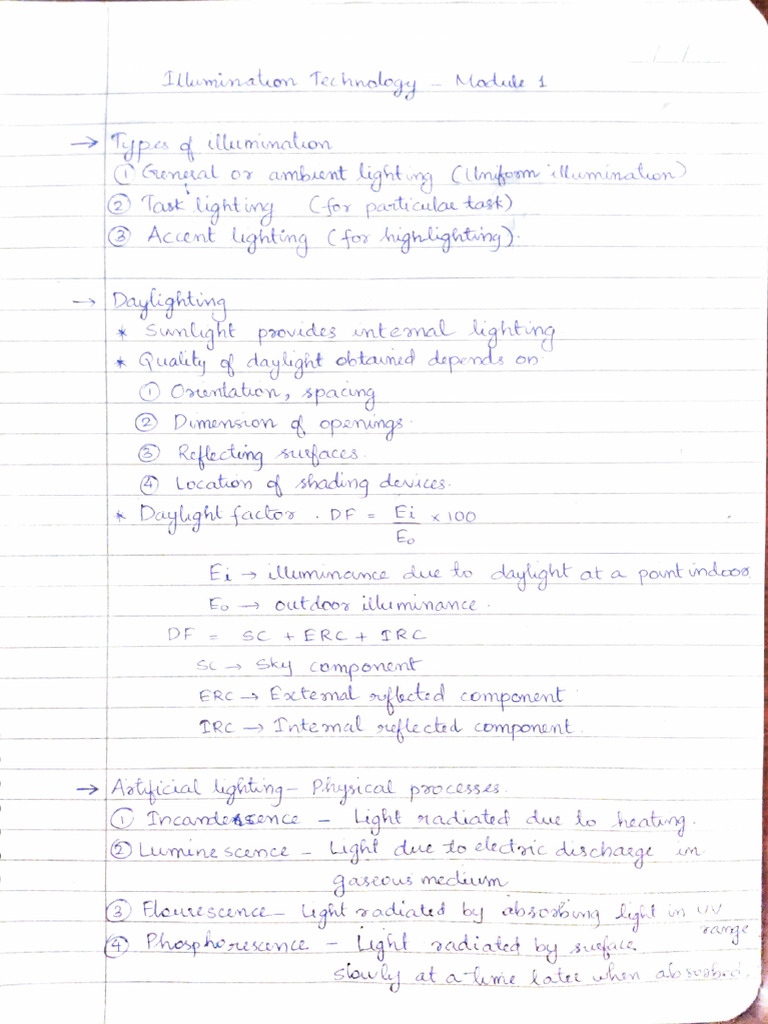 Illumination Technology - Module 1
→ Types of illumination
① General or ambient lighting (Uniform illumination)
② Task lighting (for particular task)
③ Accent lighting (for highlighting).
→ Daylighting
* Sunlight provides internal lighting
* Quality of daylight obtained depends on
① Orientation, spacing
② Dimension of openings.
③ Reflecting surfaces.
④ Location of shading devices.
* Daylight factor. DF = Ei/Eo × 100
Ei → illuminance due to daylight at a point indoor
Eo → outdoor illuminance.
DF = SC + ERC + IRC
SC → Sky component
ERC → External reflected component
IRC → Internal reflected component.
→ Artificial lighting - Physical processes.
① Incandescence - Light radiated due to heating.
② Luminescence - Light due to electric discharge in
gaseous medium
③ Flourescence - Light radiated by absorbing light in UV
range
④ Phosphorescence - Light radiated by surface
slowly at a time later when absorbed.